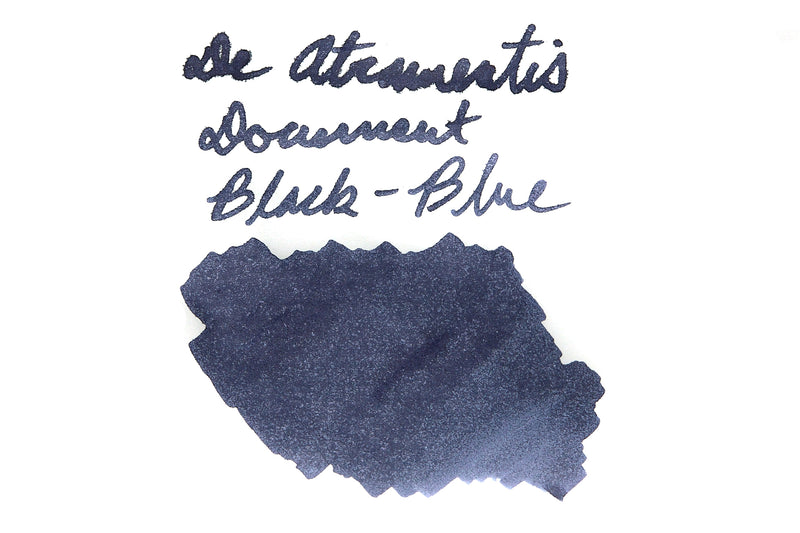 De Atramentis
Document
Black-Blue